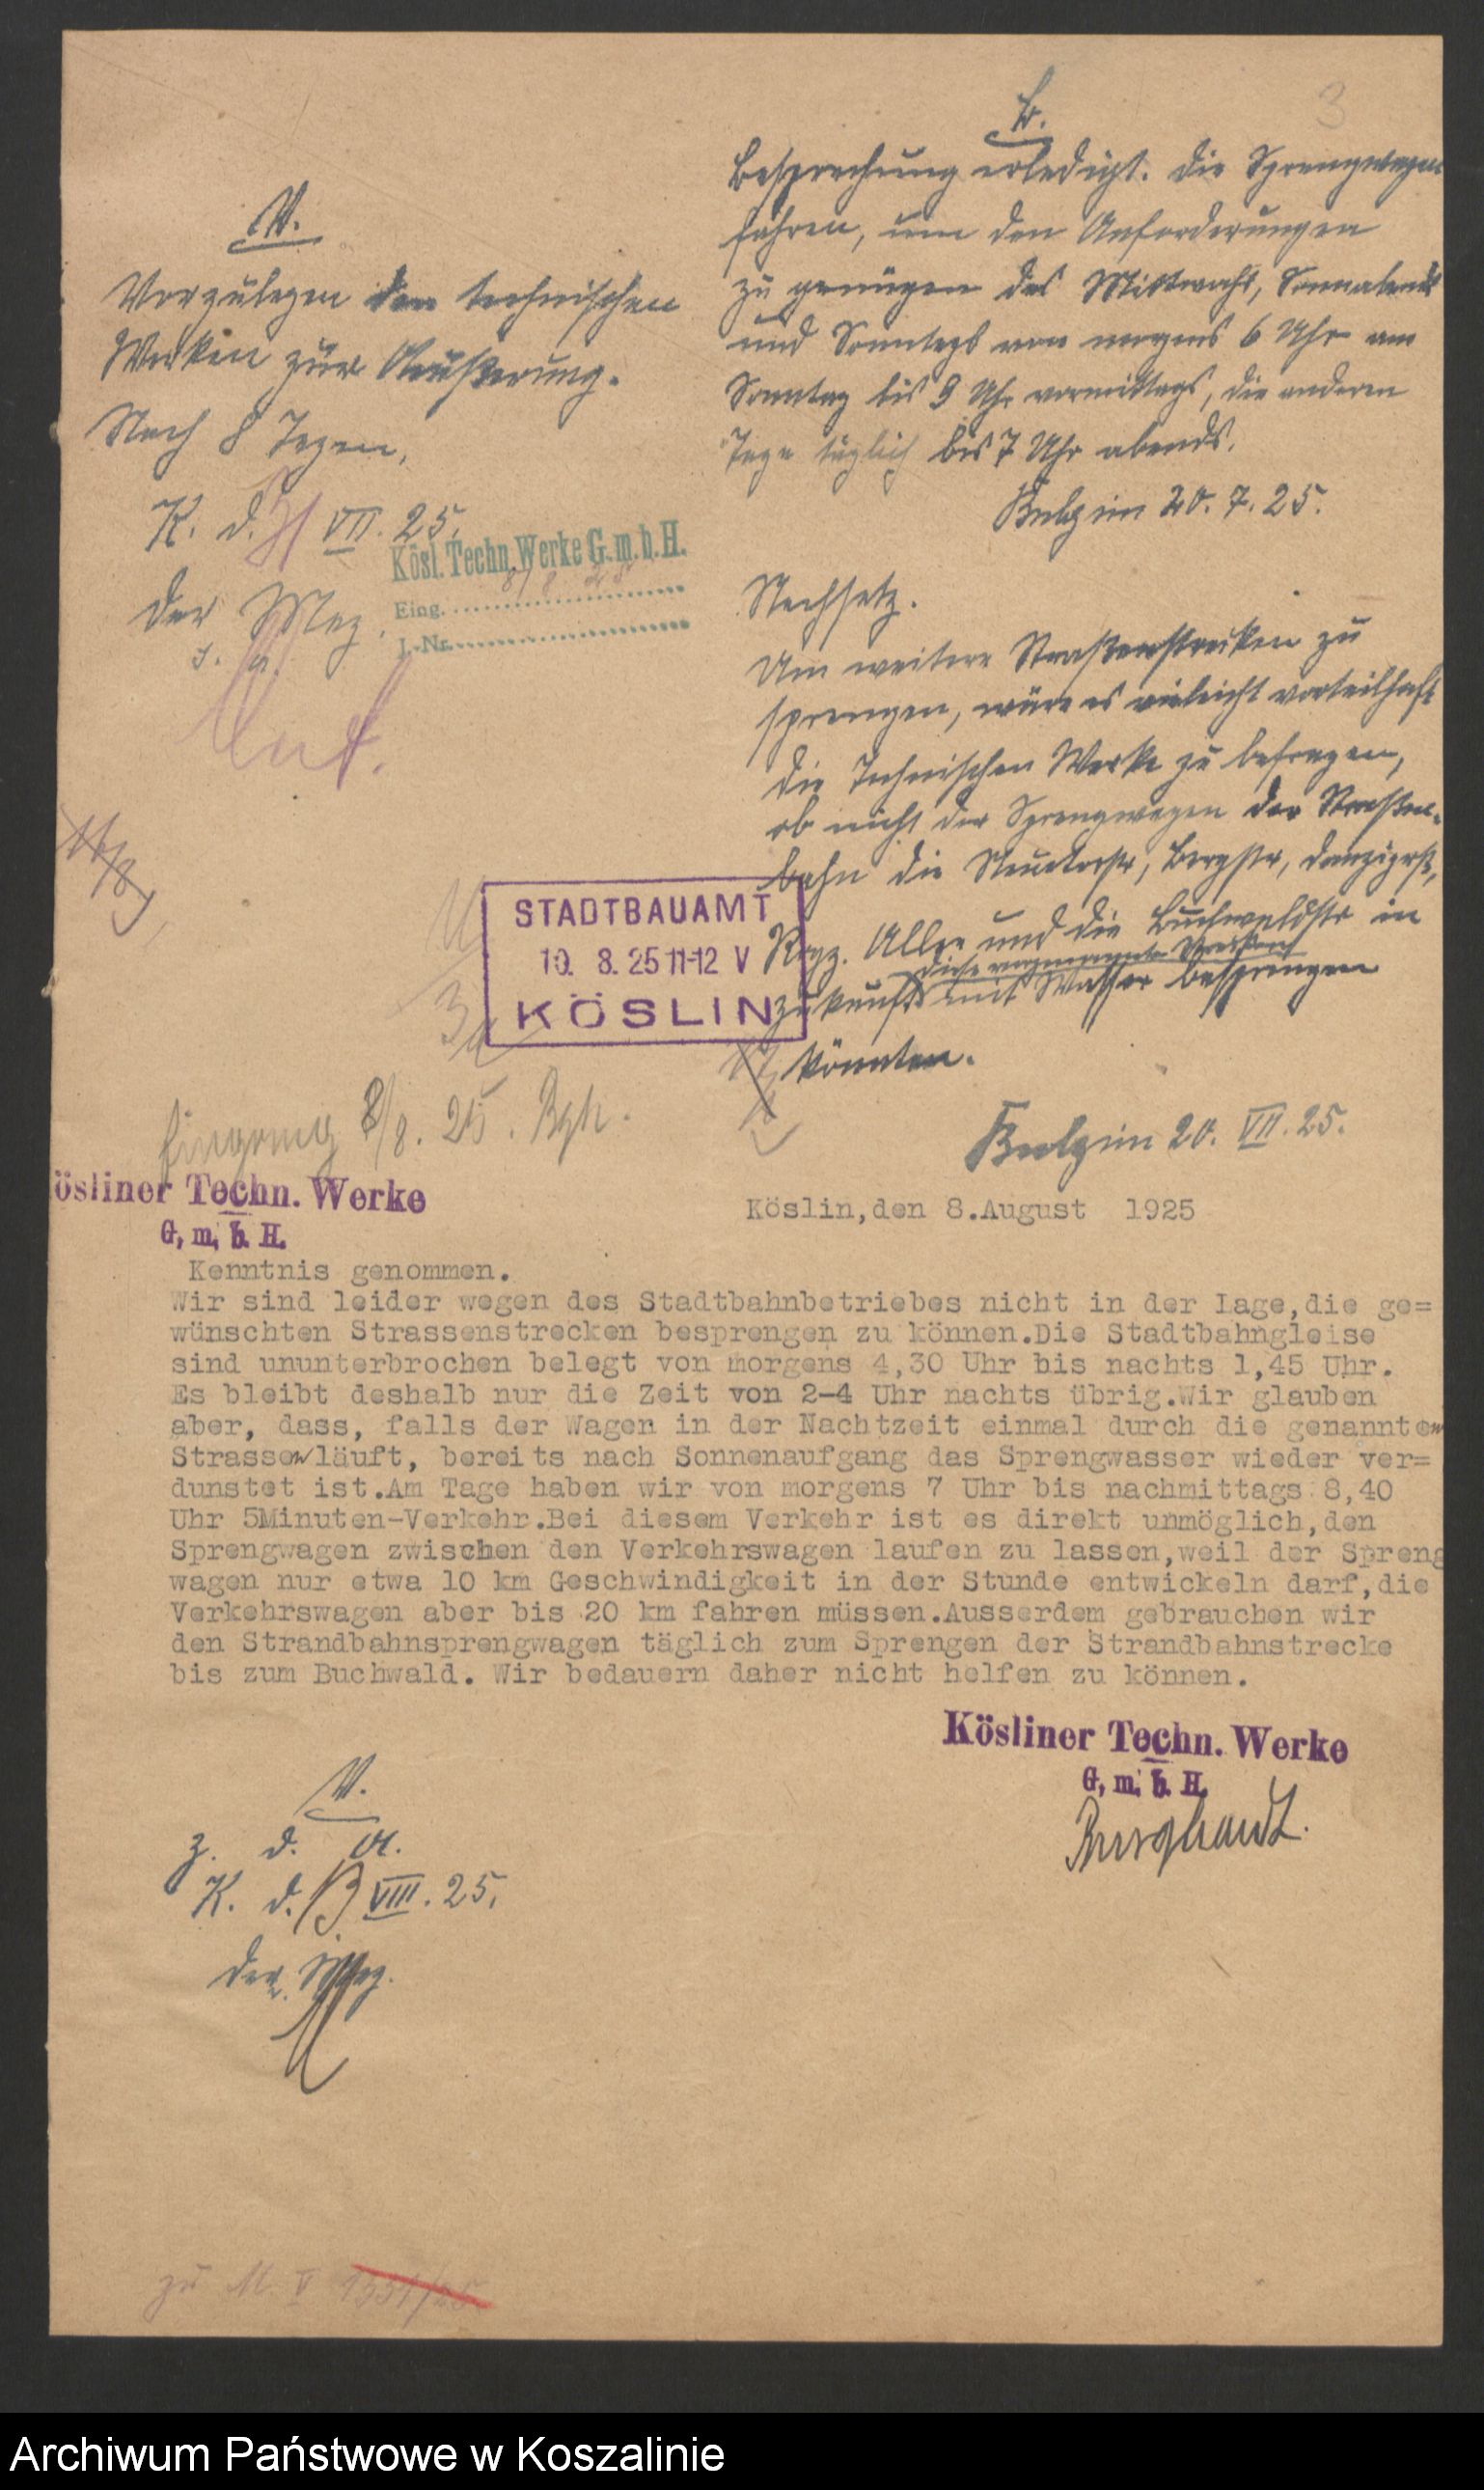 3
B.
Besprechung erledigt. Die Sprengwagen
fahren, um den Anforderungen
zu genügen des Mittwochs, Sonnabends
und Sonntags von morgens 6 Uhr am
Sonntag bis 9 Uhr vormittags, die anderen
Tage täglich bis 7 Uhr abends.
20. 7. 25.
Nachsatz.
Um weitere Straßenstrecken zu
sprengen, wäre es vieleicht vorteilhaft
die Technischen Werke zu befragen,
ob nicht der Sprengwagen der Straßen-
bahn die Neuetorstr, Bergstr, Danzigerstr,
Rogz. Allee und die Buchwaldstr in
diese
zukunft mit Wasser besprengen
könnten.
20. VII. 25.
V.
Vorzulegen den technischen
Werken zur Äußerung.
Nach 8 Tagen.
K. d. 31 VII. 25.
Der Mag.
Kösl. Techn. Werke G.m.b.H.
Eing. 8/8 25
J.-Nr.
STADTBAUAMT
10. 8. 25 11-12 V
KÖSLIN
Eingang 8/8. 25.
ösliner Techn. Werke
G. m. b. H.
Köslin, den 8.August 1925
Kenntnis genommen.
Wir sind leider wegen des Stadtbahnbetriebes nicht in der Lage,die ge=
wünschten Strassenstrecken besprengen zu können.Die Stadtbahngleise
sind ununterbrochen belegt von morgens 4,30 Uhr bis nachts 1,45 Uhr.
Es bleibt deshalb nur die Zeit von 2-4 Uhr nachts übrig.Wir glauben
aber, dass, falls der Wagen in der Nachtzeit einmal durch die genannten
Strassen läuft, bereits nach Sonnenaufgang das Sprengwasser wieder ver=
dunstet ist.Am Tage haben wir von morgens 7 Uhr bis nachmittags 8,40
Uhr 5Minuten-Verkehr.Bei diesem Verkehr ist es direkt unmöglich,den
Sprengwagen zwischen den Verkehrswagen laufen zu lassen,weil der Spreng
wagen nur etwa 10 km Geschwindigkeit in der Stunde entwickeln darf,die
Verkehrswagen aber bis 20 km fahren müssen.Ausserdem gebrauchen wir
den Strandbahnsprengwagen täglich zum Sprengen der Strandbahnstrecke
bis zum Buchwald. Wir bedauern daher nicht helfen zu können.
Kösliner Techn. Werke
G. m. b. H.
Burghardt.
V.
z. d. A.
K. d. 13 VIII. 25.
Der Mag.
zu M. V 1331/25
Archiwum Państwowe w Koszalinie